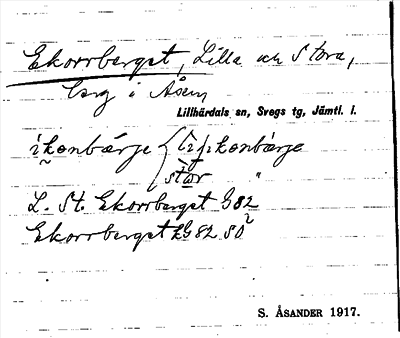 Ekorrberget, Lilla och Stora,
berg i Åsen
Lillhärdals sn, Svegs tg, Jämtl. l.
ikonbärje { lisl ikonbärje
stor "
L. St. Ekorrberget G 82
Ekorrberget LG 82 SO
S. ÅSANDER 1917.